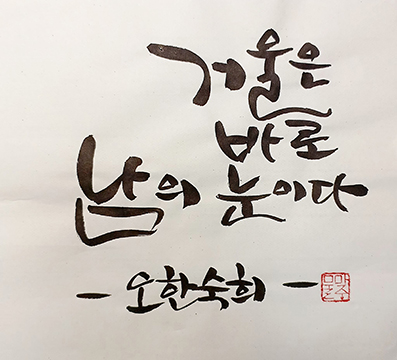 거울은
바로
남의 눈이다
- 오한숙희 -